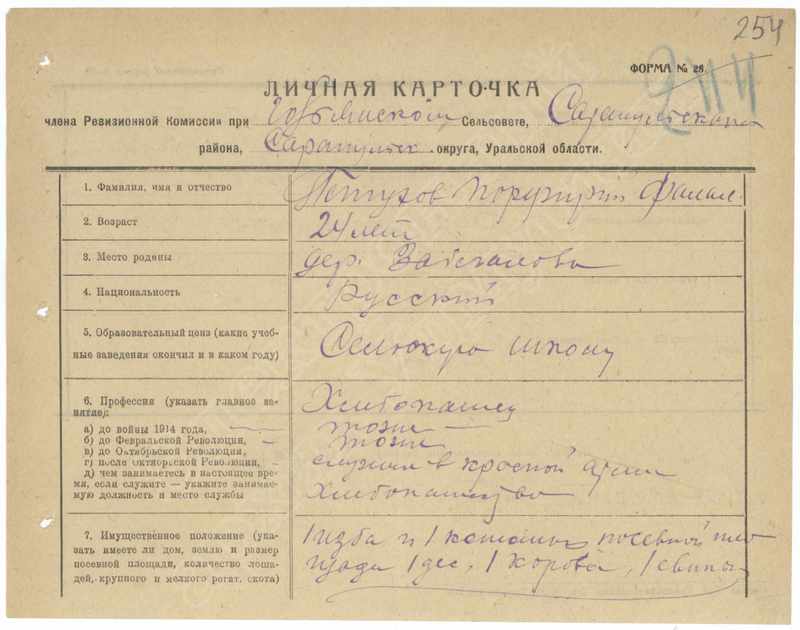 254
244
ФОРМА № 28.
ЛИЧНАЯ КАРТОЧКА
члена Ревизионной Комиссии при Сельсовете, Сарапульского
района, Сарапульск округа, Уральской области.
1. Фамилия, имя и отчество Петухов Порфирий Фалал.
2. Возраст 24 лет
3. Место родины дер.
4. Национальность Русский
5. Образовательный ценз (какие учеб-
ные заведения окончил и в каком году) Сельскую школу
6. Профессия (указать главное за-
нятие) Хлебопашец
а) до войны 1914 года, — тоже —
б) до Февральской Революции, — тоже
в) до Октябрьской Революции,
г) после Октябрьской Революции, служил в красной армии
д) чем занимаетесь в настоящее вре-
мя, если служите — укажите занимае-
мую должность и место службы Хлебопашество
7. Имущественное положение (ука-
зать имеете ли дом, землю и размер
посевной площади, количество лоша-
дей, крупного и мелкого рогат. скота)
1 изба и 1 посевной пло
щади 1 дес, 1 корова, 1 свинья